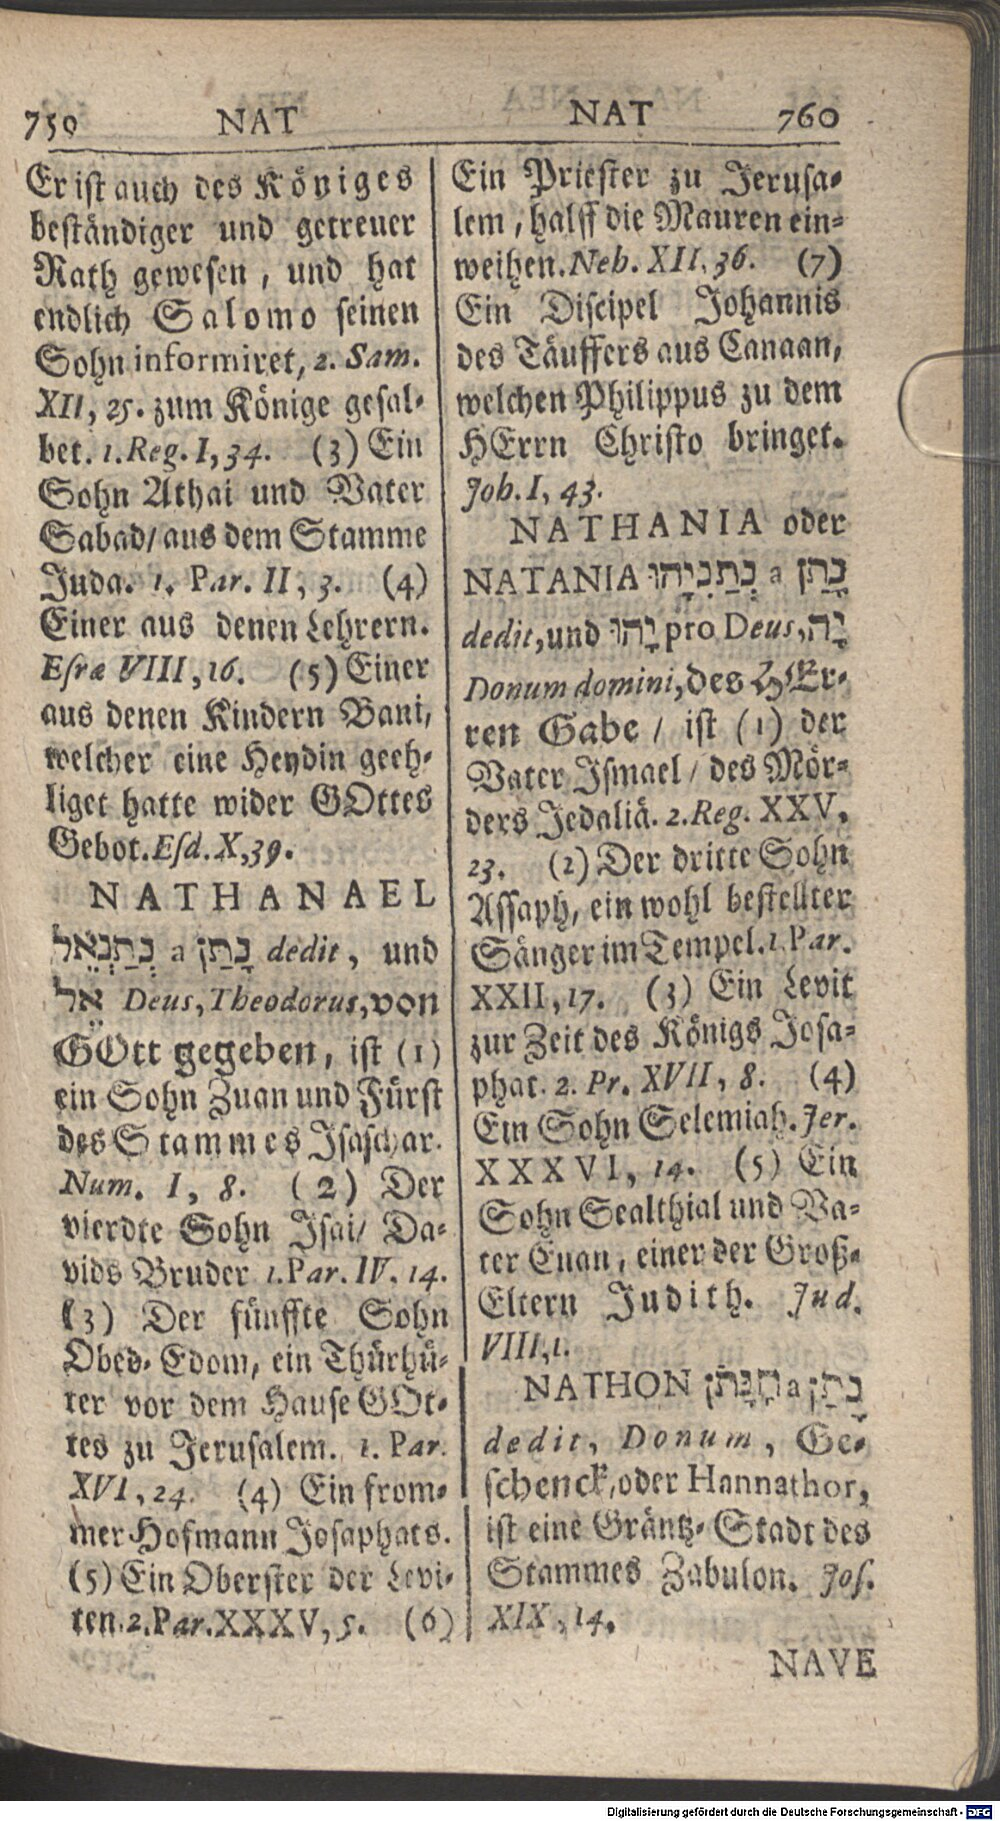 750 NAT
Er ist auch des Königes
beständiger und getreuer
Rath gewesen, und hat
endlich Salomo seinen
Sohn informiret, 2. Sam.
XII, 25. zum Könige gesal-
bet. 1. Reg. I, 34. (3) Ein
Sohn Athai und Vater
Sabad/ aus dem Stamme
Juda. 1. Par. II, 3. (4)
Einer aus denen Lehrern.
Esræ VIII, 16. (5) Einer
aus denen Kindern Bani,
welcher eine Heydin geeh-
liget hatte wider GOttes
Gebot. Esd. X, 39.
NATHANAEL
נְתַנְאֵל a נָתַן dedit, und
אל Deus, Theodorus, von
GOtt gegeben, ist (1)
ein Sohn Zuan und Fürst
des Stammes Isaschar.
Num. I, 8. (2) Der
vierdte Sohn Isai/ Da-
vids Bruder 1. Par. IV. 14.
(3) Der fünffte Sohn
Obed-Edom, ein Thürhü-
ter vor dem Hause GOt-
tes zu Jerusalem. 1. Par.
XVI, 24. (4) Ein from-
mer Hofmann Josaphats.
(5) Ein Oberster der Levi-
ten. 2. Par. XXXV, 5. (6)
NAT 760
Ein Priester zu Jerusa-
lem, halff die Mauren ein-
weihen. Neb. XII. 36. (7)
Ein Discipel Johannis
des Täuffers aus Canaan,
welchen Philippus zu dem
HErrn Christo bringet.
Joh. I, 43.
NATHANIA oder
NATANIA נְתַנְיָהוּ a נָתַן
dedit, und יָהוּ pro Deus, יָה,
Donum domini, des HEr-
ren Gabe / ist (1) der
Vater Ismael / des Mör-
ders Jedaliä. 2. Reg. XXV,
23. (2) Der dritte Sohn
Assaph, ein wohl bestellter
Sänger im Tempel. 1. Par.
XXII, 17. (3) Ein Levit
zur Zeit des Königs Josa-
phat. 2. Pr. XVII, 8. (4)
Ein Sohn Selemiah. Jer.
XXXVI, 14. (5) Ein
Sohn Sealthial und Va-
ter Enan, einer der Groß-
Eltern Judith. Jud.
VIII, 1.
NATHON הַנָּתֹן a נָתַן
dedit, Donum, Ge-
schenck, oder Hannathor,
ist eine Gräntz-Stadt des
Stammes Zabulon. Jos.
XIX, 14.
NAVE
Digitalisierung gefördert durch die Deutsche Forschungsgemeinschaft - DFG